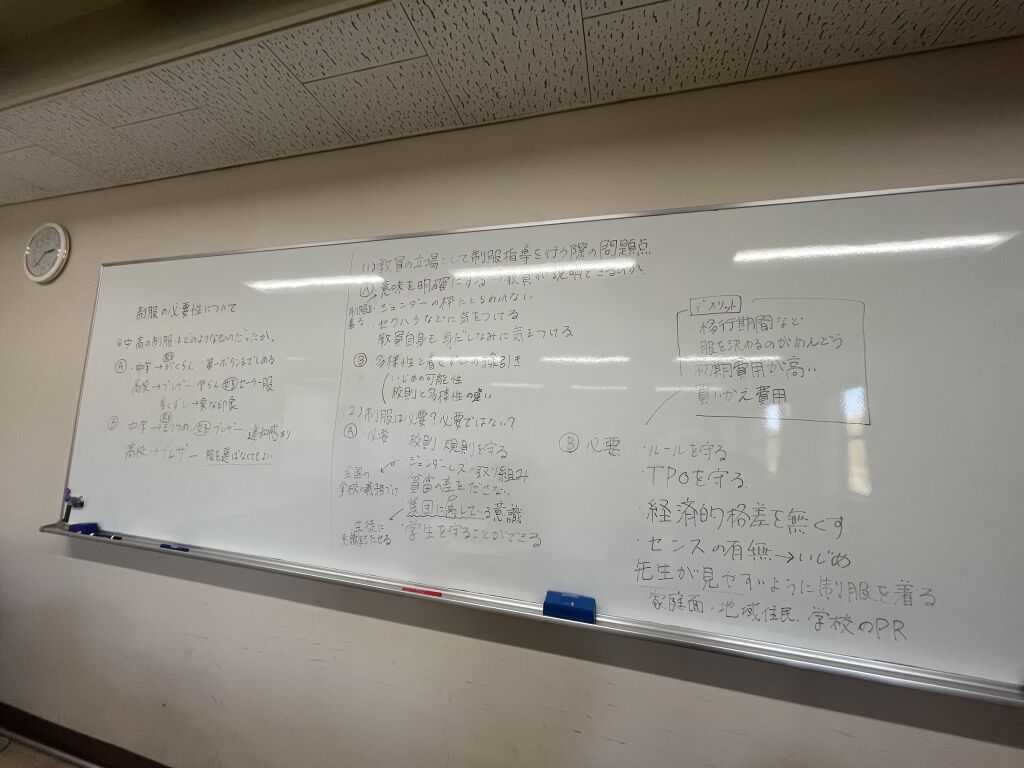 制服の必要性について
中高の制服はどのようなものだったか。
Ⓐ・中学→がくらん 第一ボタンまでしめる
高校→ブレザー 学らん 女子セーラー服
着くずし→楽な印象
Ⓑ 中学→ 女子ブレザー 違和感あり
高校→ブレザー 服を選ばなくてもよい
(1) 教員の立場として制服指導を行う際の問題点
Ⓐ 意味を明確にする 教員が説明できるのか
・ジェンダーの枠にとらわれない
・セクハラなどに気をつける
教員自身も身だしなみに気をつける
Ⓑ 多様性と着くずしの線引き
いじめの可能性
校則と多様性の違い
(2) 制服は必要?必要ではない?
Ⓐ ・必要 校則 規則を守る
ジェンダーレスの取り組み
全国の
学校が義務づけ
貧富の差をださない
集団に属している意識
生徒に
意識をもたせる
・学生を守ることができる
デメリット
移行期間など
服を決めるのがめんどう
初期費用が高い
買いかえ費用
Ⓑ 必要
・ルールを守る
・TPOを守る
・経済的格差を無くす
・センスの有無→いじめ
先生が見やすいように制服を着る
家庭面・地域住民 学校のPR